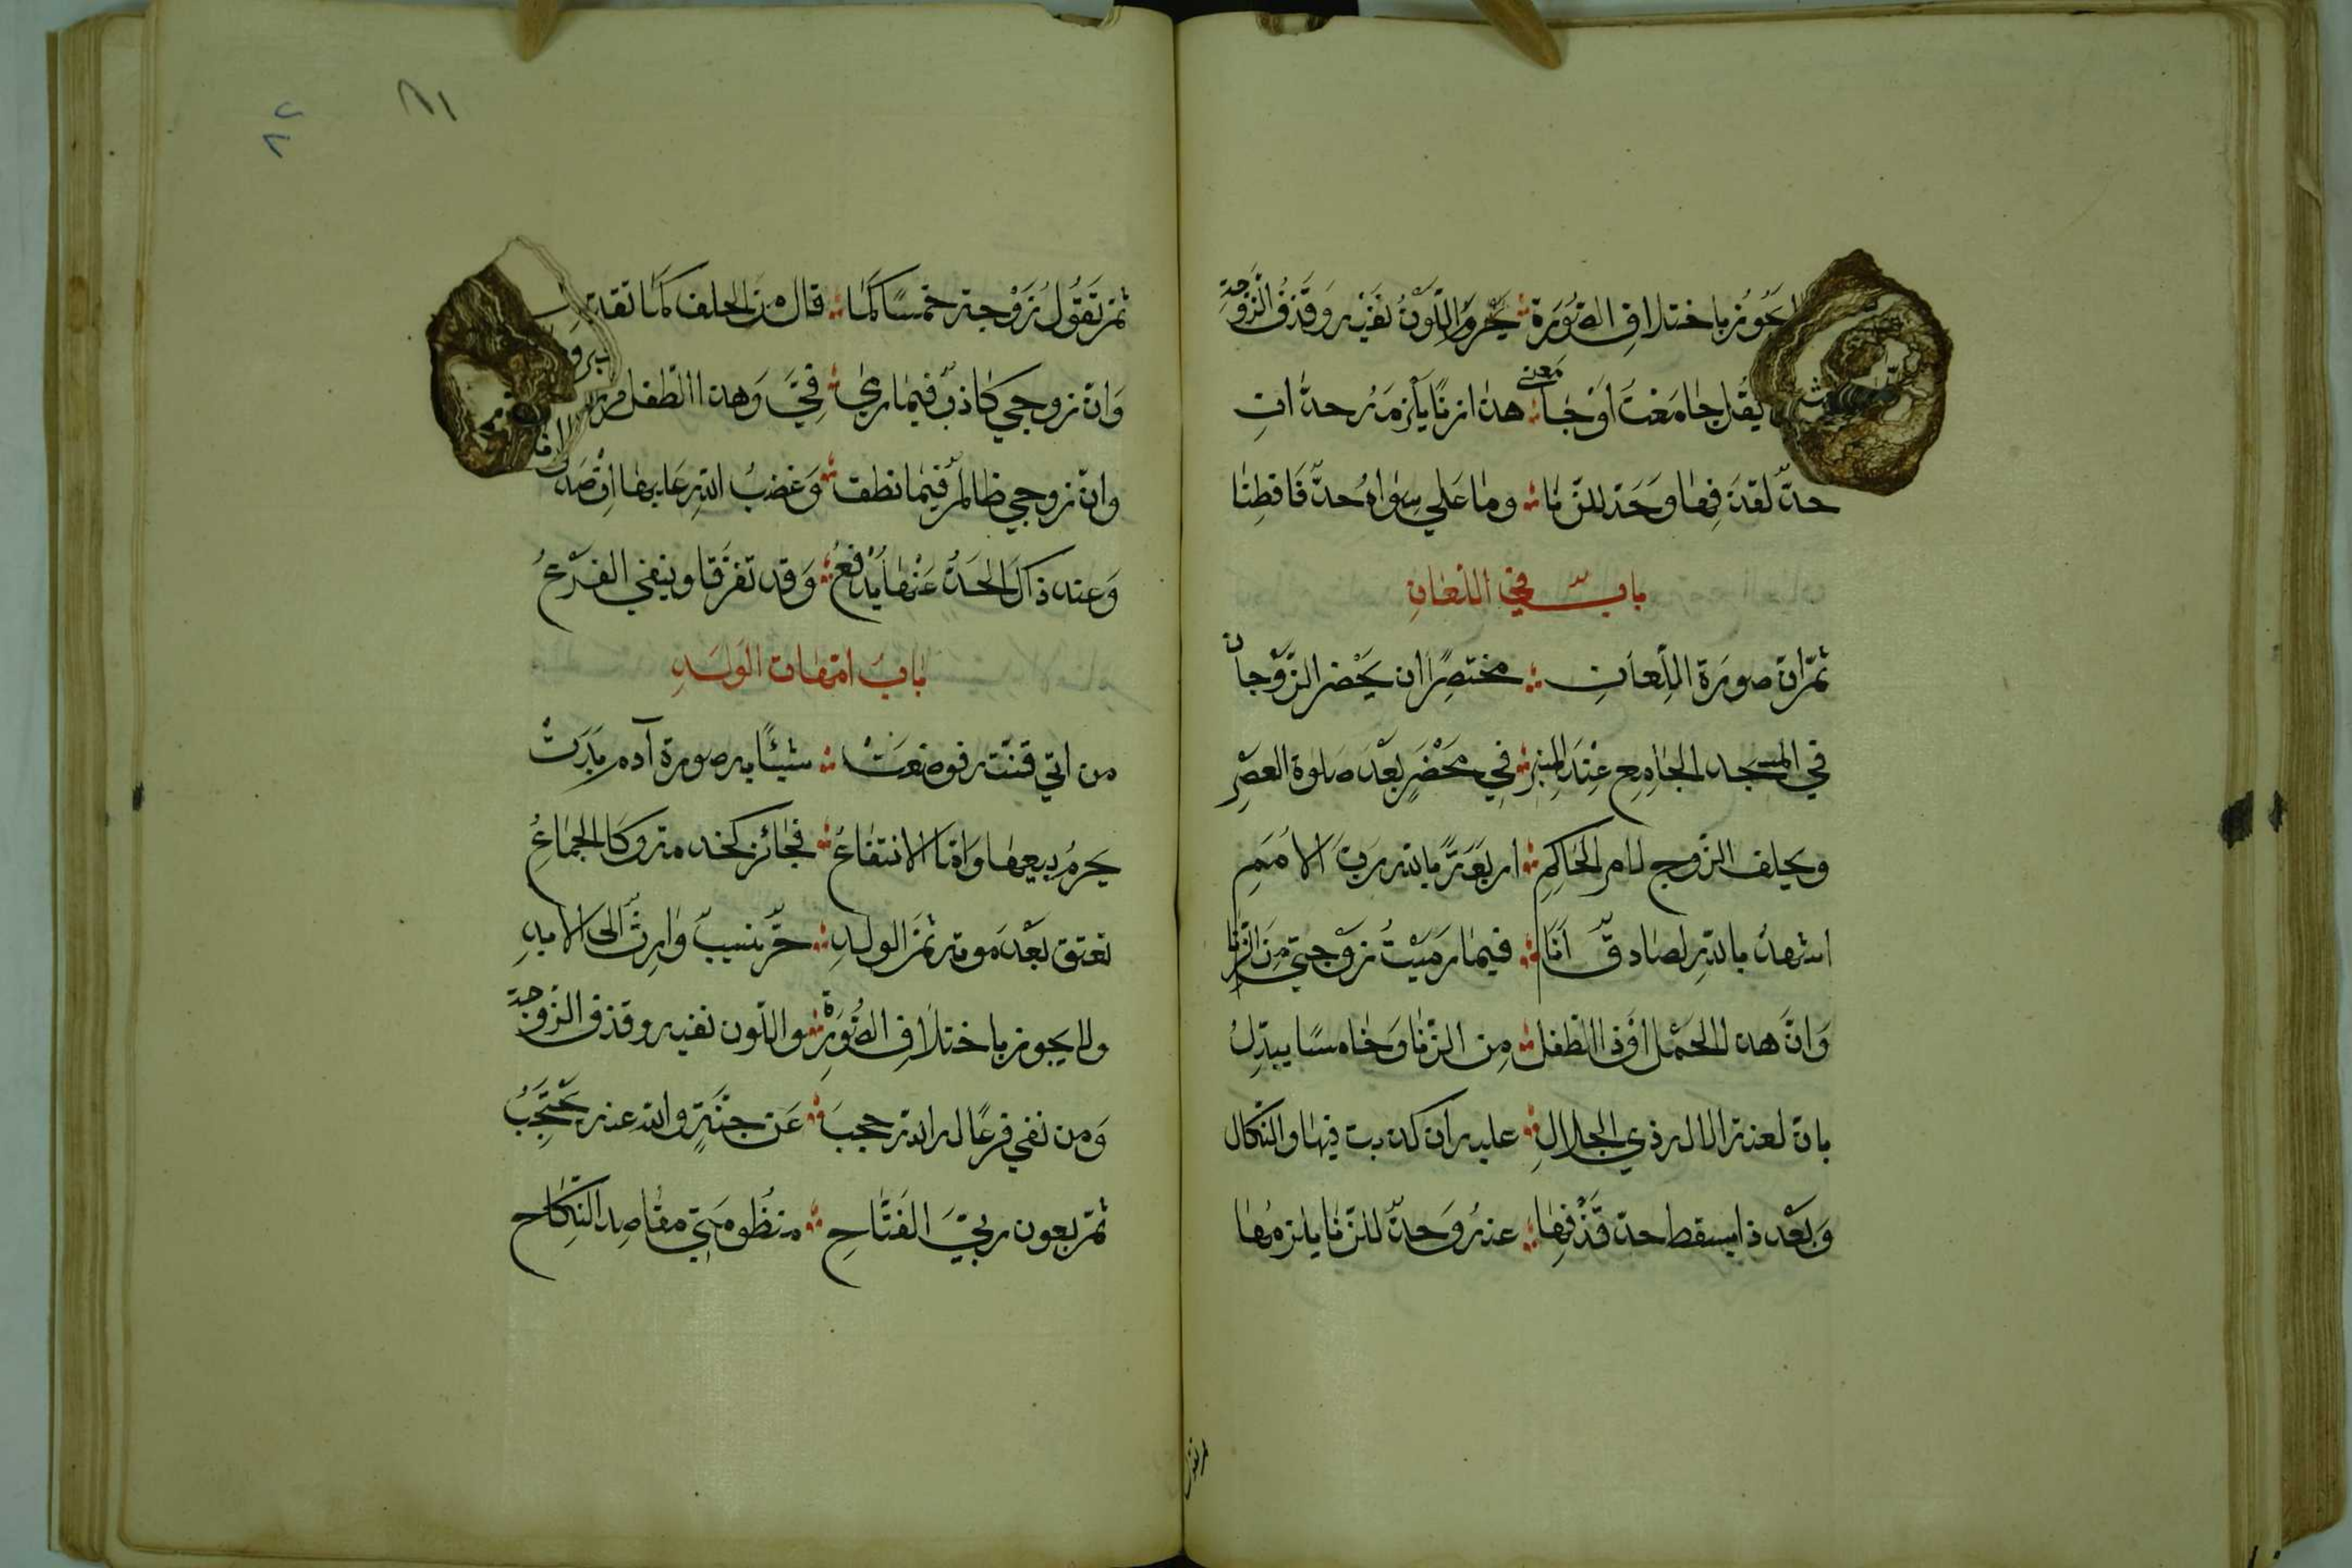 يجوز باختلاف الصورة ؞ يحرم واللون نفيه وقذف الزوجة
يقل جامعت او جا معني ؞ هذا زنا يلزمه حدان
حد لقذفها وحد للزنا ؞ وما علي سواه حد فافطنا
باب في اللعان
ثم ان صورة اللعان ؞ مختصرا ان يحضر الزوجان
في المسجد الجامع عند المنبر ؞ في محضر بعد صلوة العصر
ويحلف الزوج لامر الحاكم ؞ اربعة بالله رب الامم
اشهد بالله لصادق انا ؞ فيما رميت زوجتي من الزنا
وان هذا الحمل او ذا الطفل ؞ من الزنا وخامسا يبدل
بان لعنة الاله ذي الجلال ؞ عليه ان كذبت فيها والنكال
وبعد ذا يسقط حد قذفها ؞ عنه وحد للزنا يلزمها
ثم تقول زوجة خمسا كما ؞ قال من الحلف كما تقد
وان زوجي كاذب فيما رمي ؞ في وهذا الطفل
وان زوجي ظالم فيما نطق ؞ وغضب الله عليها ان صدق
وعند ذاك الحد عنها يدفع ؞ وقد تفرقا وينفي الفرع
باب امهات الولد
من اتي قنته فوضعت ؞ شيئا به صورة آدم بدت
يحرم بيعها واما الانتفاع ؞ فجائز كخدمة وكالجماع
تعتق بعد موته ثم الولد ؞ حر نسيب وارث الى الابد
ولا يجوز باختلاف الصورة ؞ واللون نفيه وقذف الزوجة
ومن نفي فرعا له الله حجب ؞ عن جنة والله عنه يحتجب
ثم بعون ربي الفتاح ؞ منظومتي مقاصد النكاح
٨١
٨٢